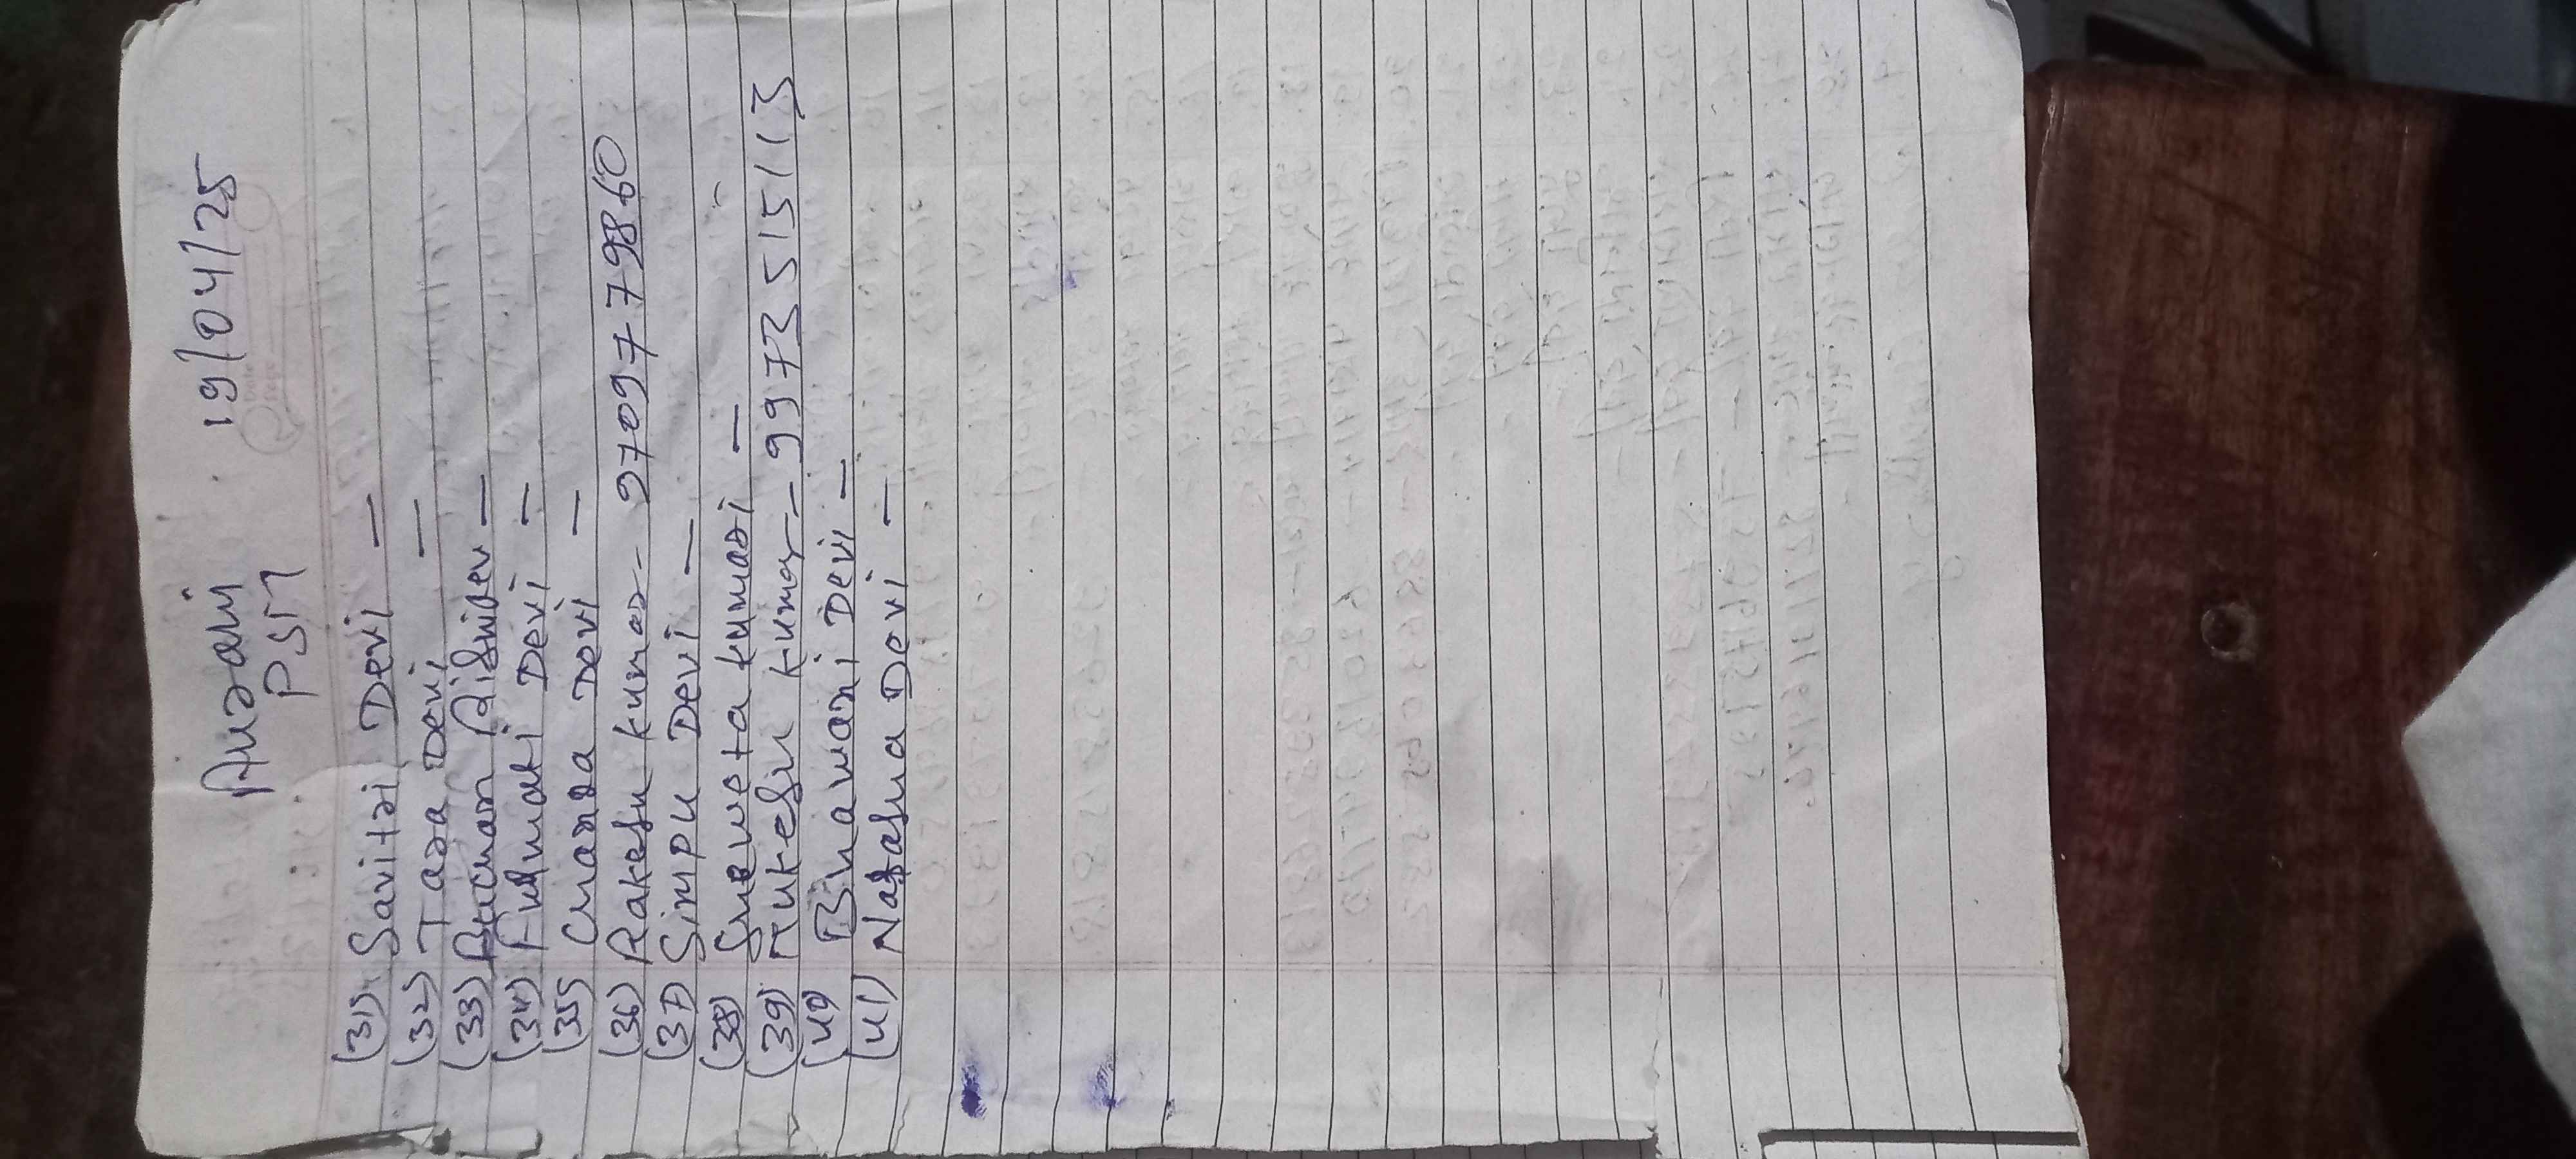 19/04/25
PSM
(31) Savitri Devi —
(32) Tara Devi —
(33) Rishidev —
(34) Fulmati Devi —
(35) Chanda Devi —
(36) Rakesh kumar - 9709779860
(37) Simpu Devi —
(38) Shweta kumari —
(39) Mukesh kumar - 9973515113
(40) Bhawani Devi —
(41) Natasha Devi —